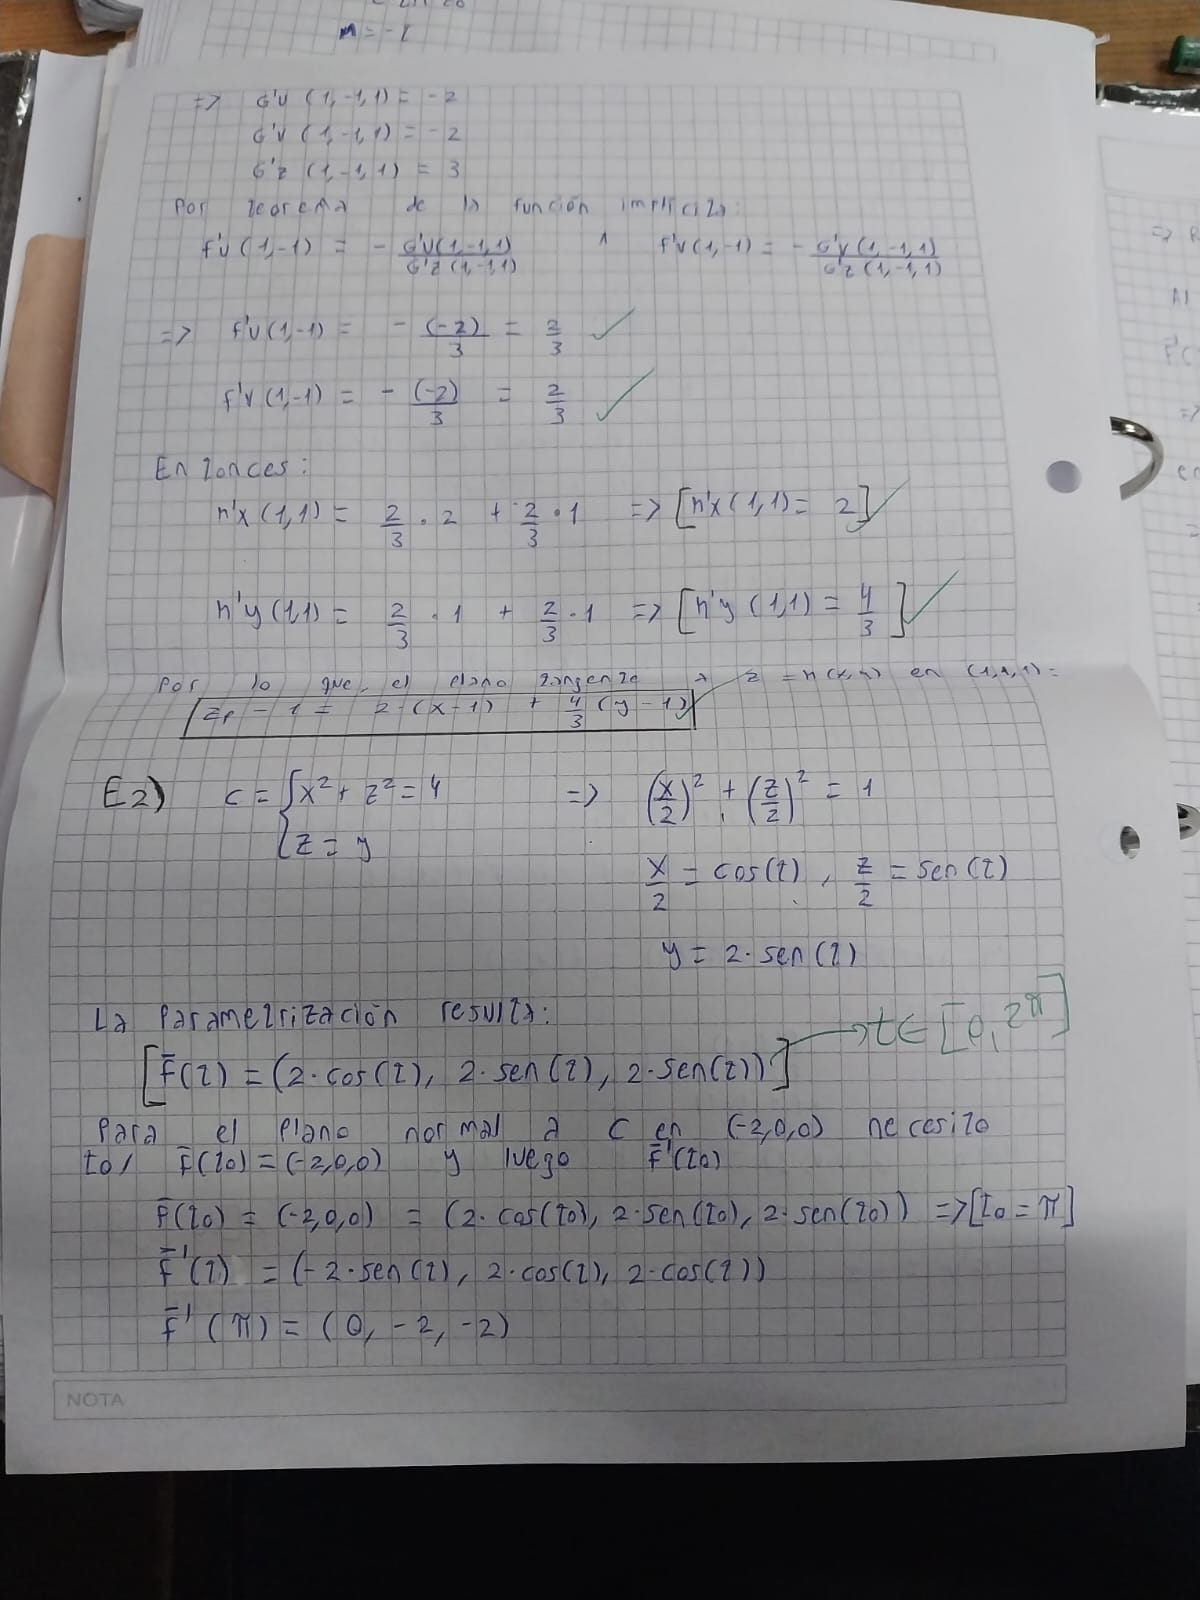 m = -1
=> G'u (1,-1,1) = -2
G'v (1,-1,1) = -2
G'z (1,-1,1) = 3
Por teorema de la función implícita:
f'u(1,-1) = - G'u(1,-1,1) / G'z(1,-1,1) ∧ f'v(1,-1) = - G'v(1,-1,1) / G'z(1,-1,1)
=> f'u(1,-1) = - (-2)/3 = 2/3 ✓
f'v(1,-1) = - (-2)/3 = 2/3 ✓
Entonces:
h'x(1,1) = 2/3 · 2 + 2/3 · 1 => [h'x(1,1) = 2] ✓
h'y(1,1) = 2/3 · 1 + 2/3 · 1 => [h'y(1,1) = 4/3] ✓
Por lo que, el plano tangente a z = h(x,y) en (1,1,1) =
zp - 1 = 2·(x-1) + 4/3 (y-1) ✓
E2) C = { x² + z² = 4 => (x/2)² + (z/2)² = 1
z = y
x/2 = cos(t), z/2 = sen(t)
y = 2·sen(t)
La parametrización resulta:
t ∈ [0, 2π]
[f̄(t) = (2·cos(t), 2·sen(t), 2·sen(t))]
Para el plano normal a C en (-2,0,0) necesito
to/ f̄(to) = (-2,0,0) y luego f̄'(to)
f̄(to) = (-2,0,0) = (2·cos(to), 2·sen(to), 2·sen(to)) => [to = π]
f̄'(t) = (-2·sen(t), 2·cos(t), 2·cos(t))
f̄'(π) = (0, -2, -2)
NOTA